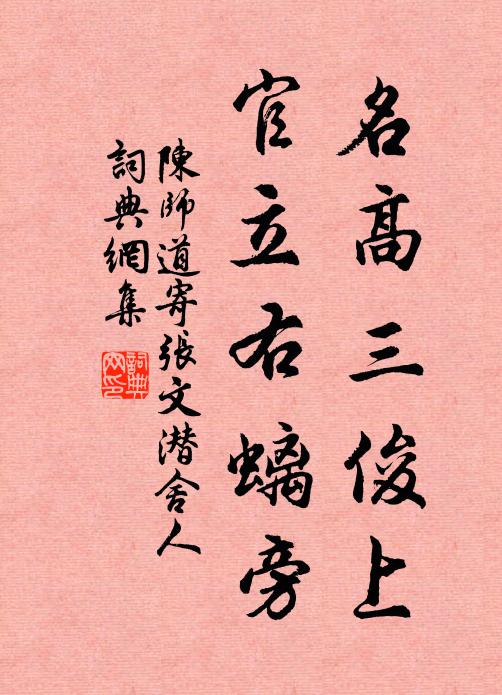 名高三俊上
官立右螭旁
陳師道寄張文潜舍人
詞典網集
詞典
网印